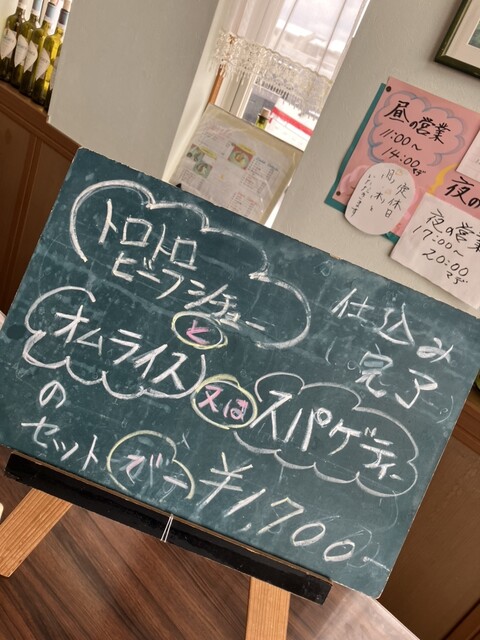 トロトロ
ビーフシチュー
と
オムライス
又は
スパゲティー
の
セット
¥1,700-
仕込み
完了
昼の営業
11:00~
14:00まで
定休日
夜の
夜の営業
17:00~
20:00まで